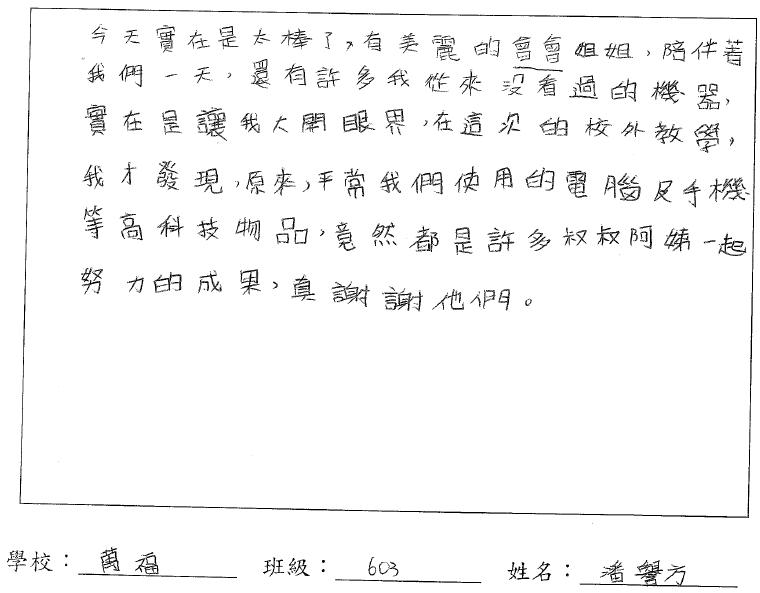 今天實在是太棒了,有美麗的會會姐姐,陪伴著
我們一天,還有許多我從來沒看過的機器,
實在是讓我大開眼界,在這次的校外教學,
我才發現,原來,平常我們使用的電腦及手機
等高科技物品,竟然都是許多叔叔阿姨一起
努力的成果,真謝謝他們。
學校:萬福 班級:603 姓名:潘譽方